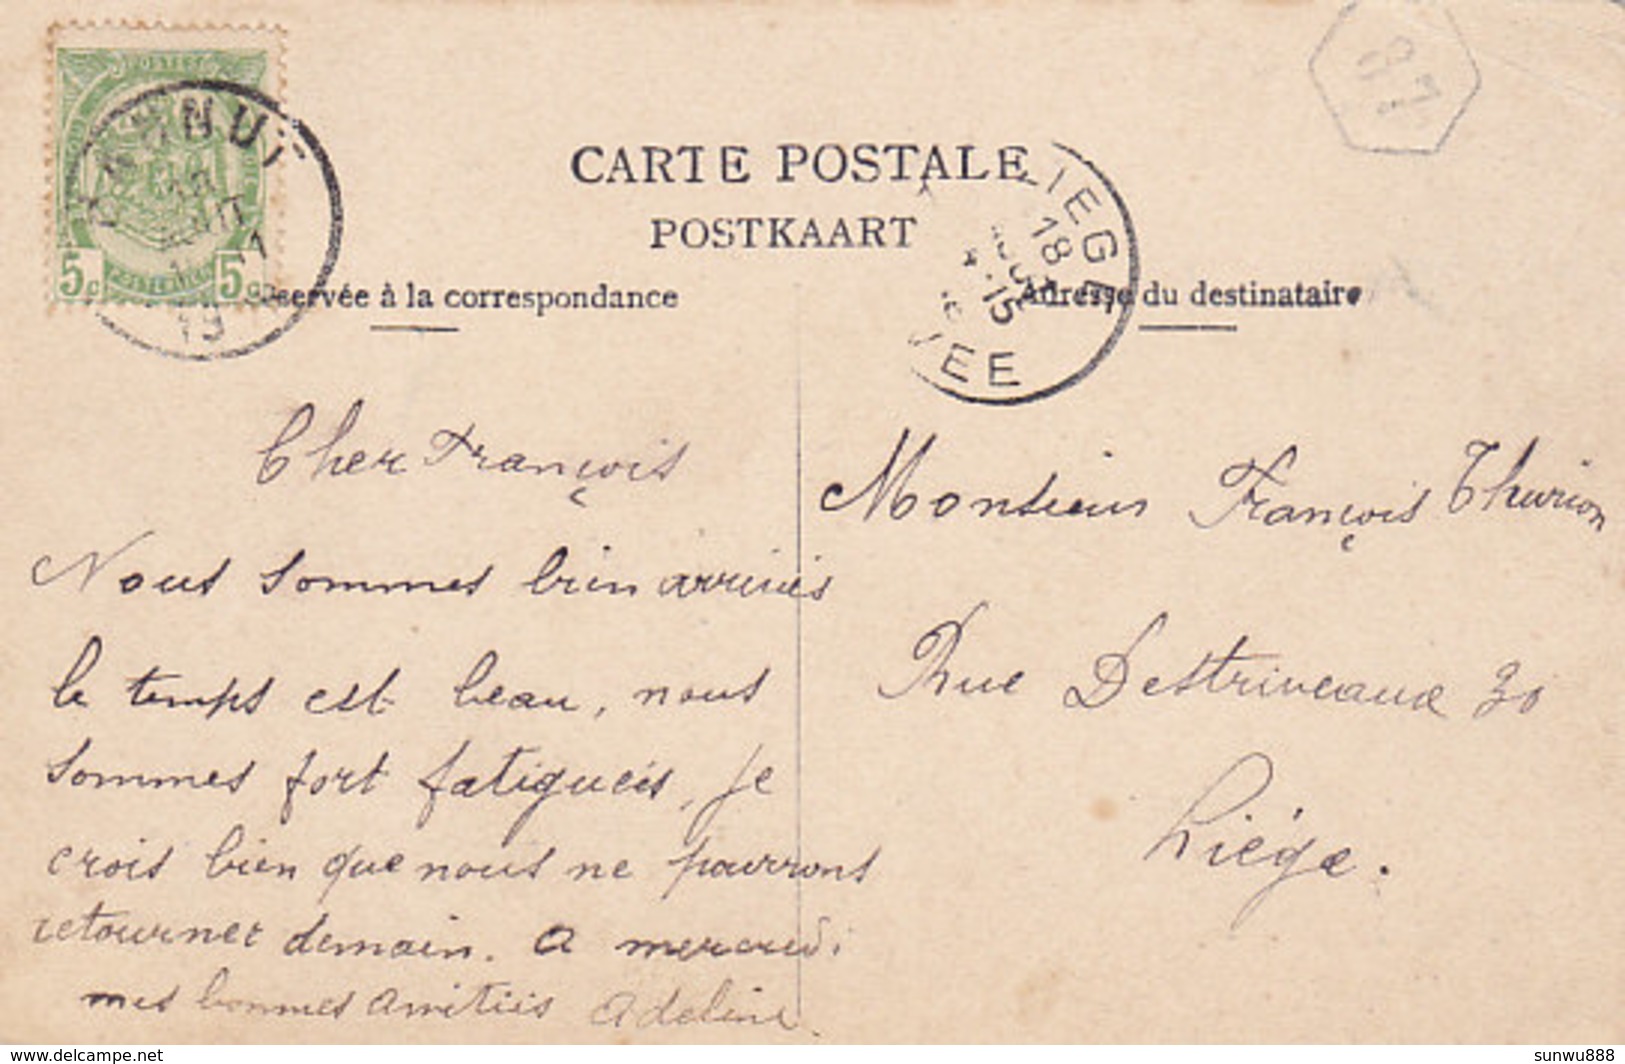 POSTES
5c 5c
HANNUT
11
19
97
CARTE POSTALE
POSTKAART
LIEGE
18
15
VEE
servée à la correspondance
Adresse du destinataire
Cher François
Nous sommes bien arrivés
le temps est beau, nous
sommes fort fatiguéis, je
crois bien que nous ne pourrons
retourner demain. a mercredi
mes bonnes amitiés Adeline
Monsieur François Thirion
Rue Destriveaux 30
Liége.
www.delcampe.net
sunwu888